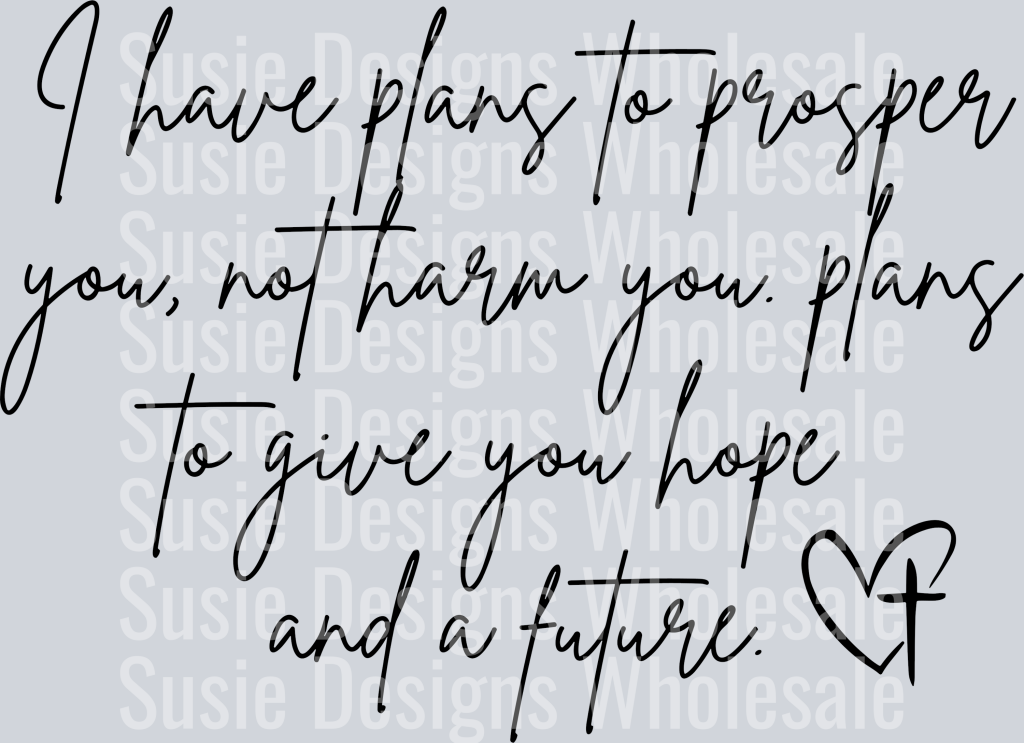 I have plans to prosper
you, not harm you. plans
to give you hope
and a future.
Susie Designs Wholesale
Susie Designs Wholesale
Susie Designs Wholesale
Susie Designs Wholesale
Susie Designs Wholesale
Susie Designs Wholesale
Susie Designs Wholesale
Susie Designs Wholesale